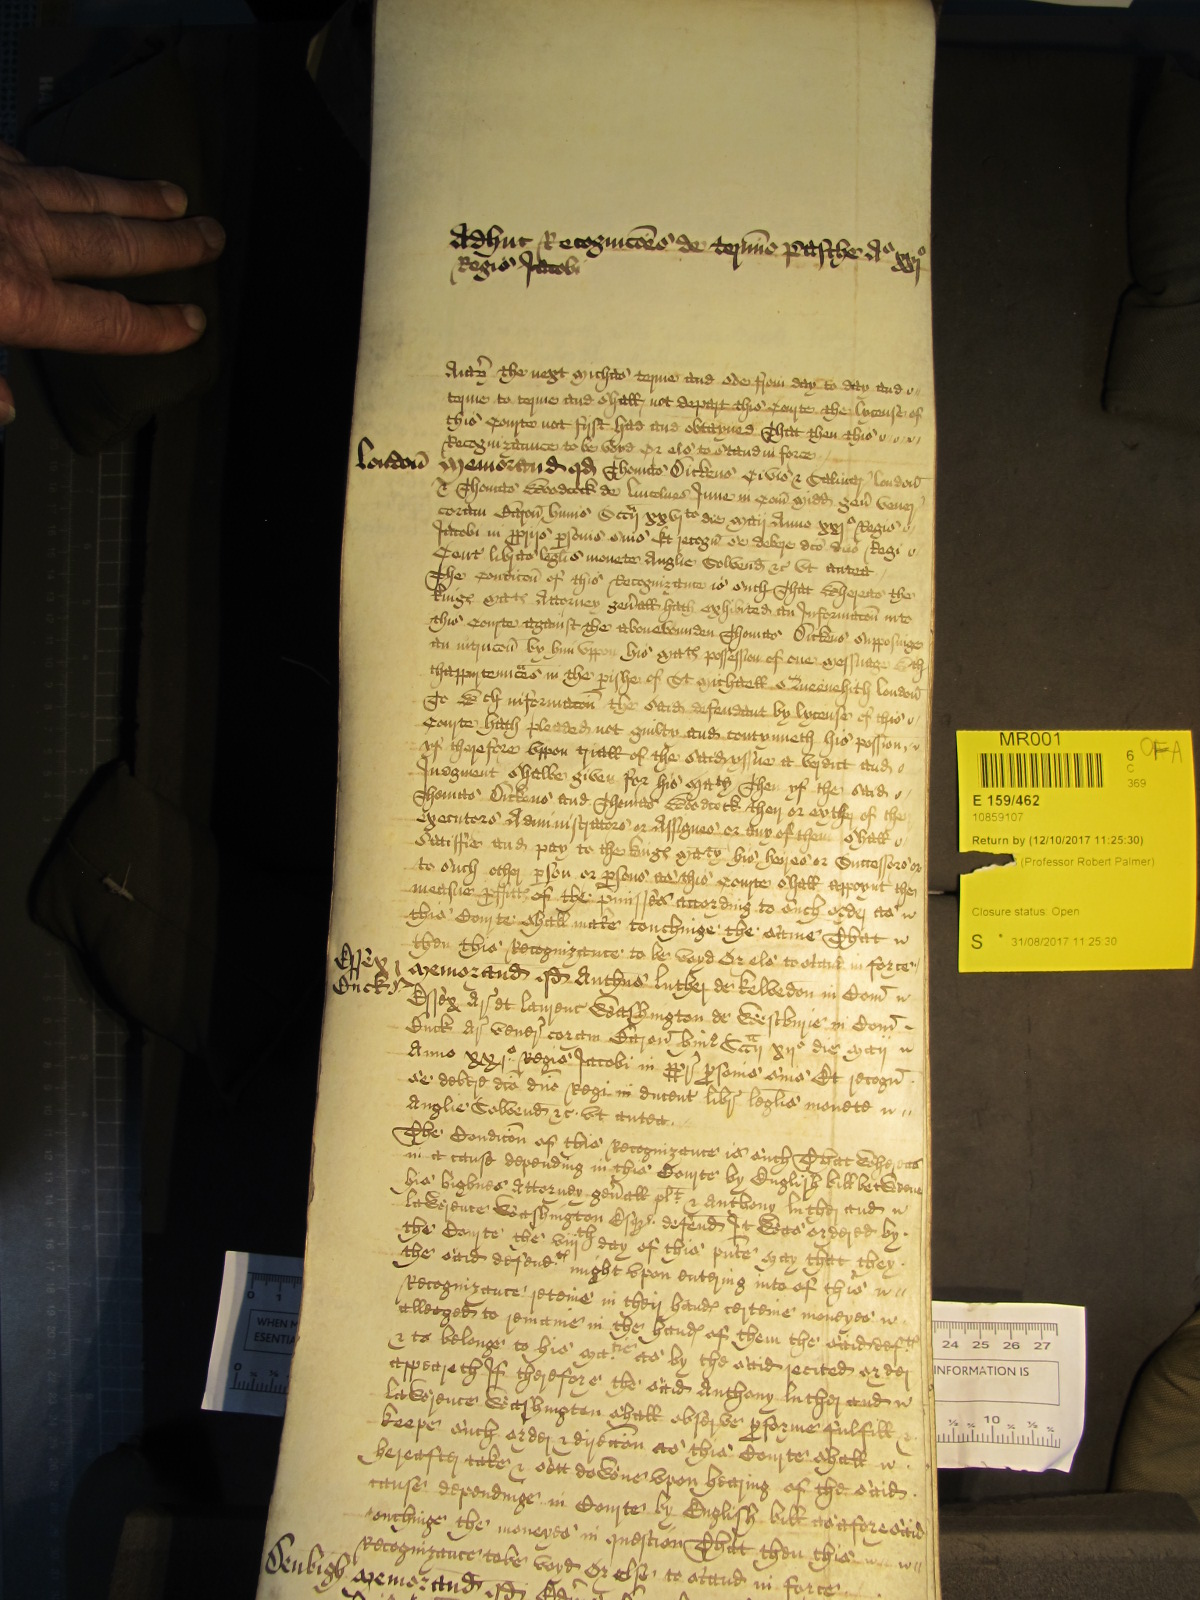 Adhuc Recognicões de termĩo Pasche Aº xxjº
Regis Jacobi
the next Michas terme and soe from day to day and
terme to terme and shall not depart this Courte the lycense of
this Courte not fyrst had and obtayned That then this
Recognizance to be voyd or els to stand in force
London Memorand qd Thomas Dickens Civis & London
& Thomas Woodcock de Lincolnes Inne in Com Midd gen vener
coram Baron huius Sccij xxvjto die Maij Anno xxjº Regis
Jacobi in pprijs psonis suis Et recogn se debere dco dno Regi
Cent libras leglis monete Anglie Solvend &c vt antea
The Condicon of this Recognizance is such That Whereas the
Kings Mats Attorney gen'all hath exhibited an Informacon into
this Courte against the abovebounden Thomas Dickens supposinge
an intrucon by him vppon his Mats possession of one messuage wth
thappurtenñces in the pishe of St Michaell Queenehith London
To wch informacon the said defendant by lycense of this
Courte hath pleaded not guilty and contynueth his possion,
yf therefore vppon tryall of the said yssue a verdict and
Judgment shalbe given for his Maty Then yf the said
Thomas Dickens and Thomas Woodcock they or eyther of the
executors Administrators or Assignes or any of them shall
satisfie and pay to the kings Maty his heyres or Successors or
to such other pson or psons as this Courte shall appoynt the
measne pfitts of the pmisses according to such order as
this Courte shall make touchinge the same That
then this Recognizance to be voyd Or els to stand in force
Essex Memorand qd Anthus Luther de Kelvedon in Com
Buck
Essex Ar et Laurenc Washington de Westburie in Com
Buck Ar vener coram Baron huius Sccij xijº die Maij
Anno xxjº Regis Jacobi in ppr psonis suis Et recogn
se debere dco dno Regi in ducent libr leglis monete
Anglie Solvend &c. vt antea.
The Condicon of this Recognizance is such That Whereas
in a cause depending in this Courte by English bill betweene
his highnes Attorney gen'all plt & Anthony Luther and
Lawrence Washington Esqrs defend It was ordered by
the Courte the viijth day of this pnte May that they
the said defendts might vpon entering into of this
Recognizance reteine in their hands certeine moneyes
alleaged to remaine in the hands of them the said defts
& to belonge to his Matie as by the said recited order
appeareth If therefore the said Anthony Luther and
Lawrence Washington shall observe pforme fulfill &
keepe such order & direccon as this Courte shall
hereafter take & sett downe vpon hearing of the said
cause dependinge in Courte by English bill as aforesaid
touchinge the moneyes in question That then this
Recognizance to be voyd Or else to stand in force
Denbigh Memorand qd
MR001
6
C
369
E 159/462
10859107
Return by (12/10/2017 11:25:30)
(Professor Robert Palmer)
Closure status: Open
S 31/08/2017 11:25:30
0 1
WHEN M
ESENTIA
0
24 25 26 27
INFORMATION IS
10